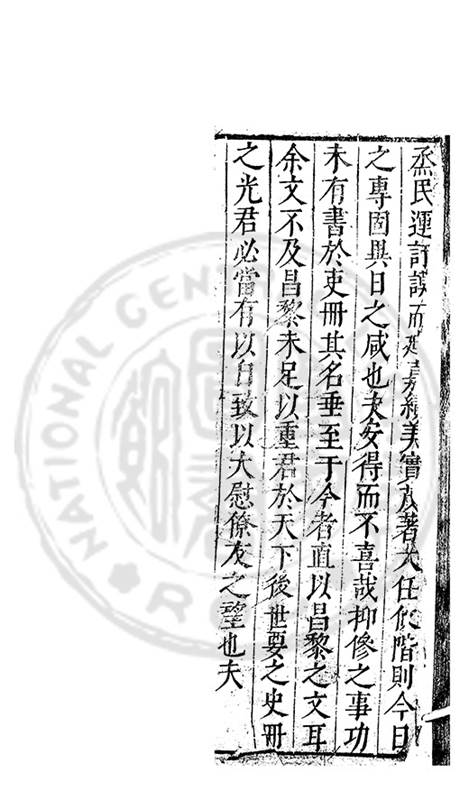 烝民運訏謨而嘉績美實茂著大任攸階則今日
之專固異日之咸也夫安得而不喜哉抑修之事功
未有書於吏冊其名垂至于今者直以昌黎之文耳
余文不及昌黎未足以重君於天下後世要之史冊
之光君必當有以自致以大慰僚友之望也夫
NATIONAL CENT